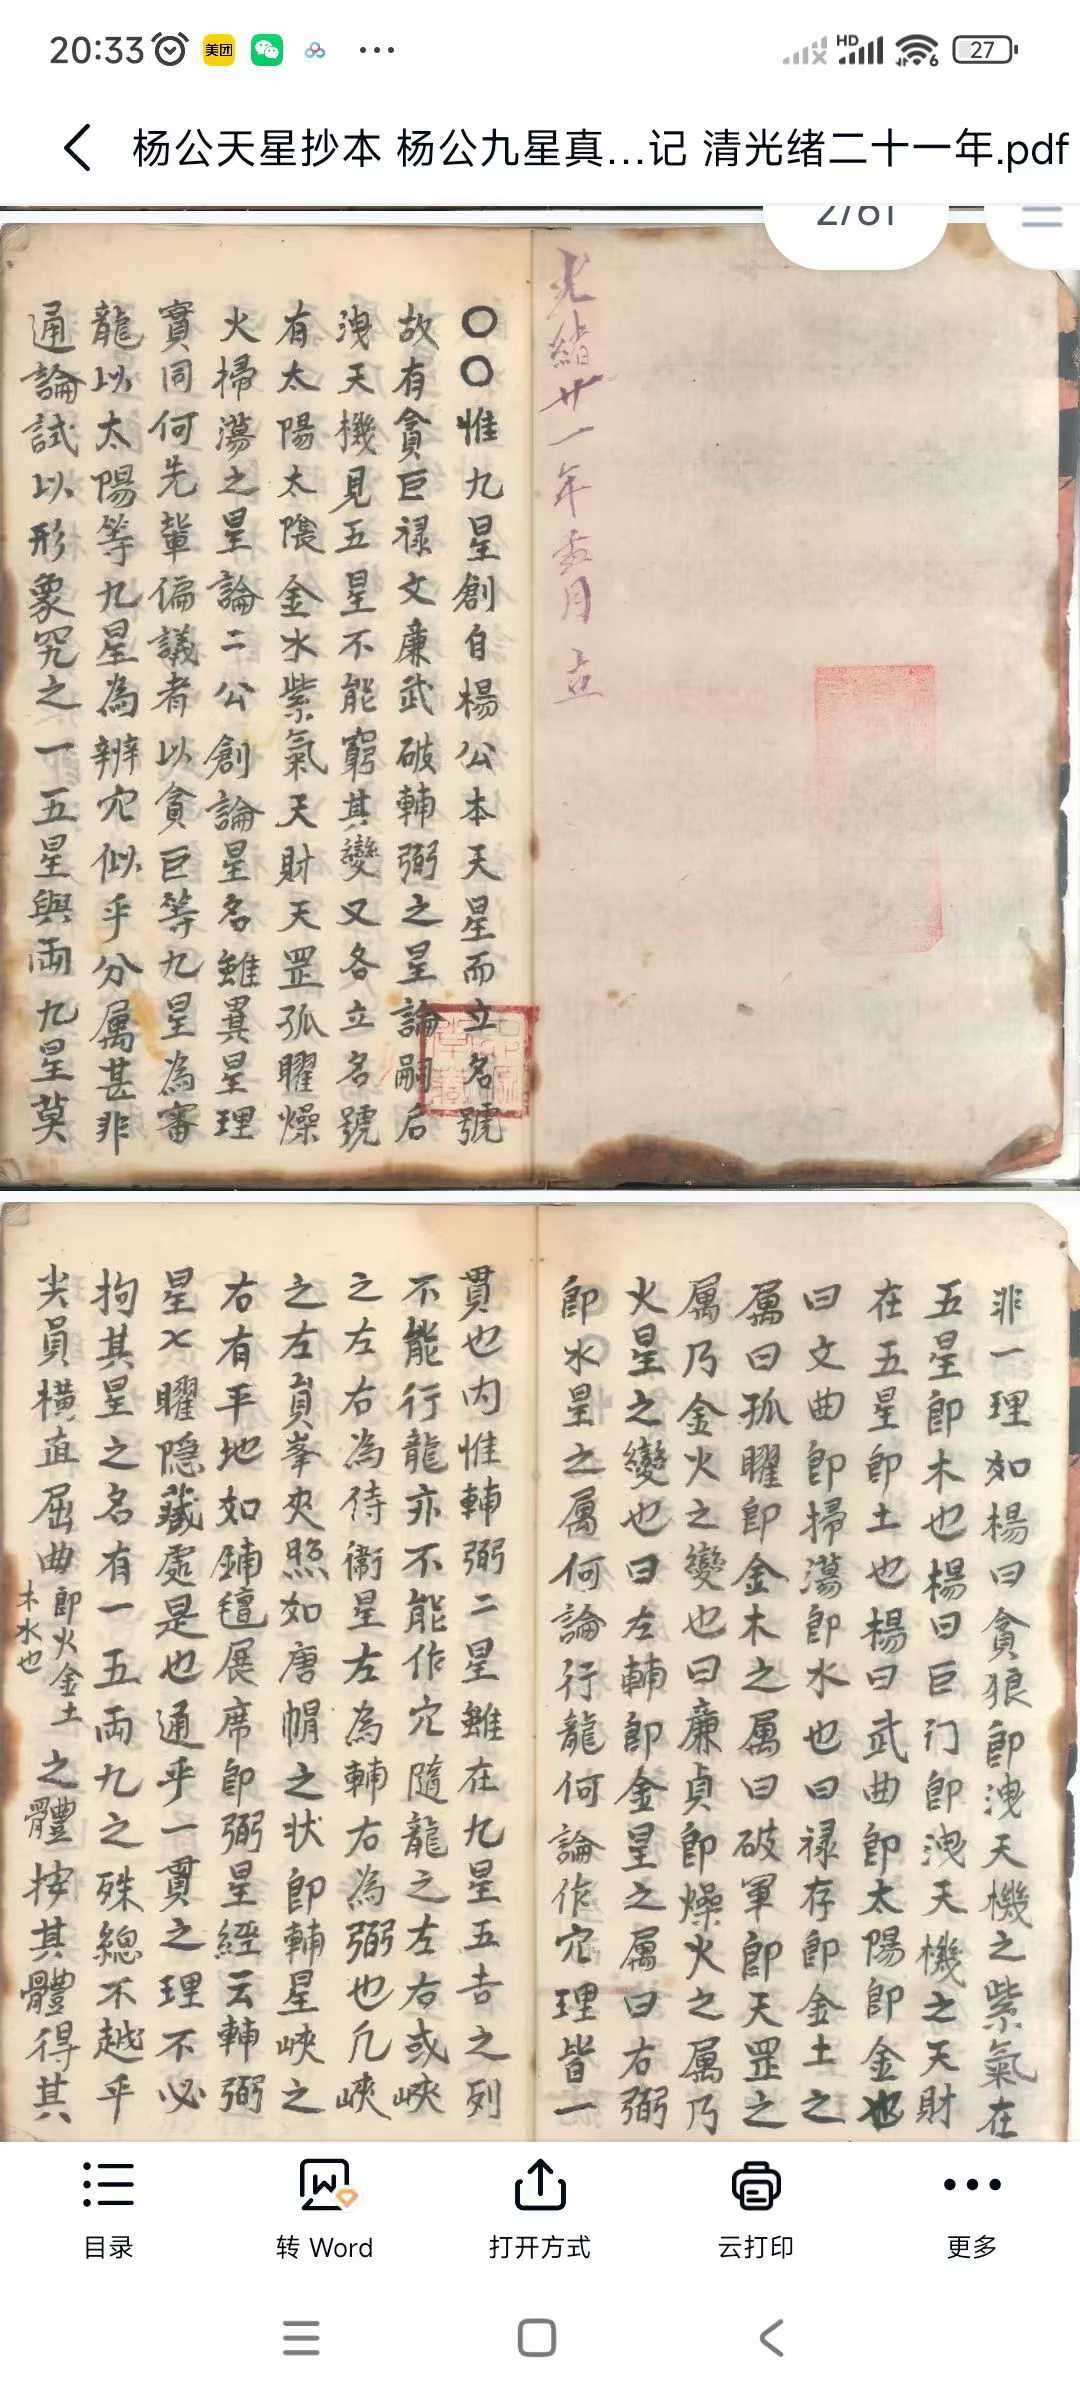 20:33
美团
HD
6
27
杨公天星抄本 杨公九星真...记 清光绪二十一年.pdf
2/61
光緒廿一年 月 立
〇〇惟九星創自楊公本天星而立名號
故有貪巨禄文廉武破輔弼之星論嗣后
洩天機見五星不能窮其變又各立名號
有太陽太陰金水紫氣天財天罡孤曜燥
火掃蕩之星論二公創論星名雖異星理
實同何先輩偏議者以貪巨等九星為審
龍以太陽等九星為辨穴似乎分属甚非
通論試以形象究之一五星與两九星莫
非一理如楊曰貪狼即洩天機之紫氣在
五星即木也楊曰巨门即洩天機之天財
在五星即土也楊曰武曲即太陽即金也
曰文曲即掃蕩即水也曰禄存即金土之
属曰孤曜即金木之属曰破軍即天罡之
属乃金火之變也曰廉貞即燥火之属乃
火星之變也曰左輔即金星之属曰右弼
即水星之属何論行龍何論作穴理皆一
貫也内惟輔弼二星雖在九星五吉之列
不能行龍亦不能作穴隨龍之左右或峽
之左右為侍衛星左為輔右為弼也凡峽
之左右員峯夾照如唐帽之状即輔星峽之
右有平地如鋪氊展席即弼星經云輔弼
星㐅曜隐藏處是也通乎一貫之理不必
拘其星之名有一五両九之殊總不越乎
尖員横直屈曲即火金土木水也之體按其體得其
目录
转 Word
打开方式
云打印
更多